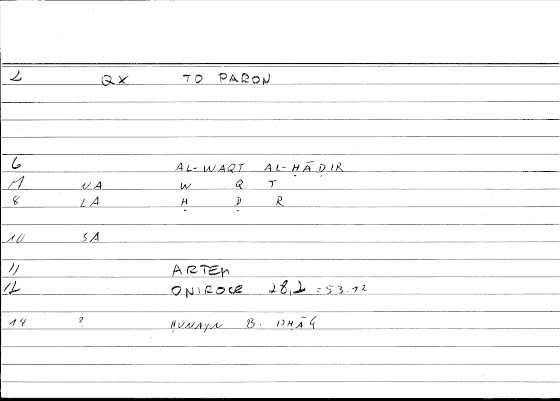 2 QX TO PARON
6 AL-WAQT AL-ḤĀḌIR
7 NA W Q T
8 LA Ḥ Ḍ R
10 SA
11 ARTEM
12 ONIROCR 28,2 = 53.12
14 ? ḤUNAYN B. ISHĀQ